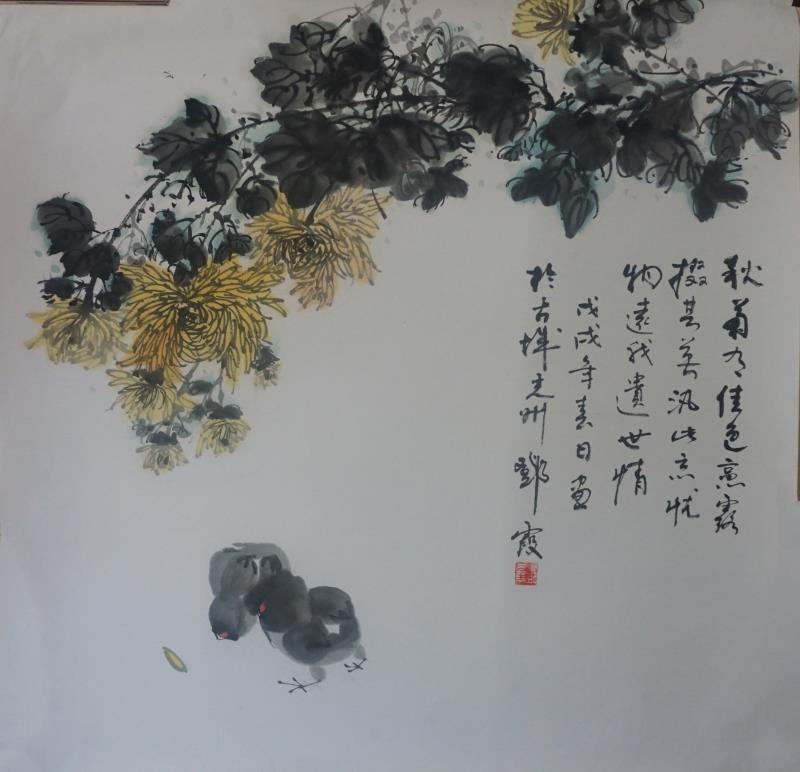 秋菊有佳色裛露
掇其英汎此忘忧
物遠我遺世情
戊戌年春日画
於古城光州鄧霞